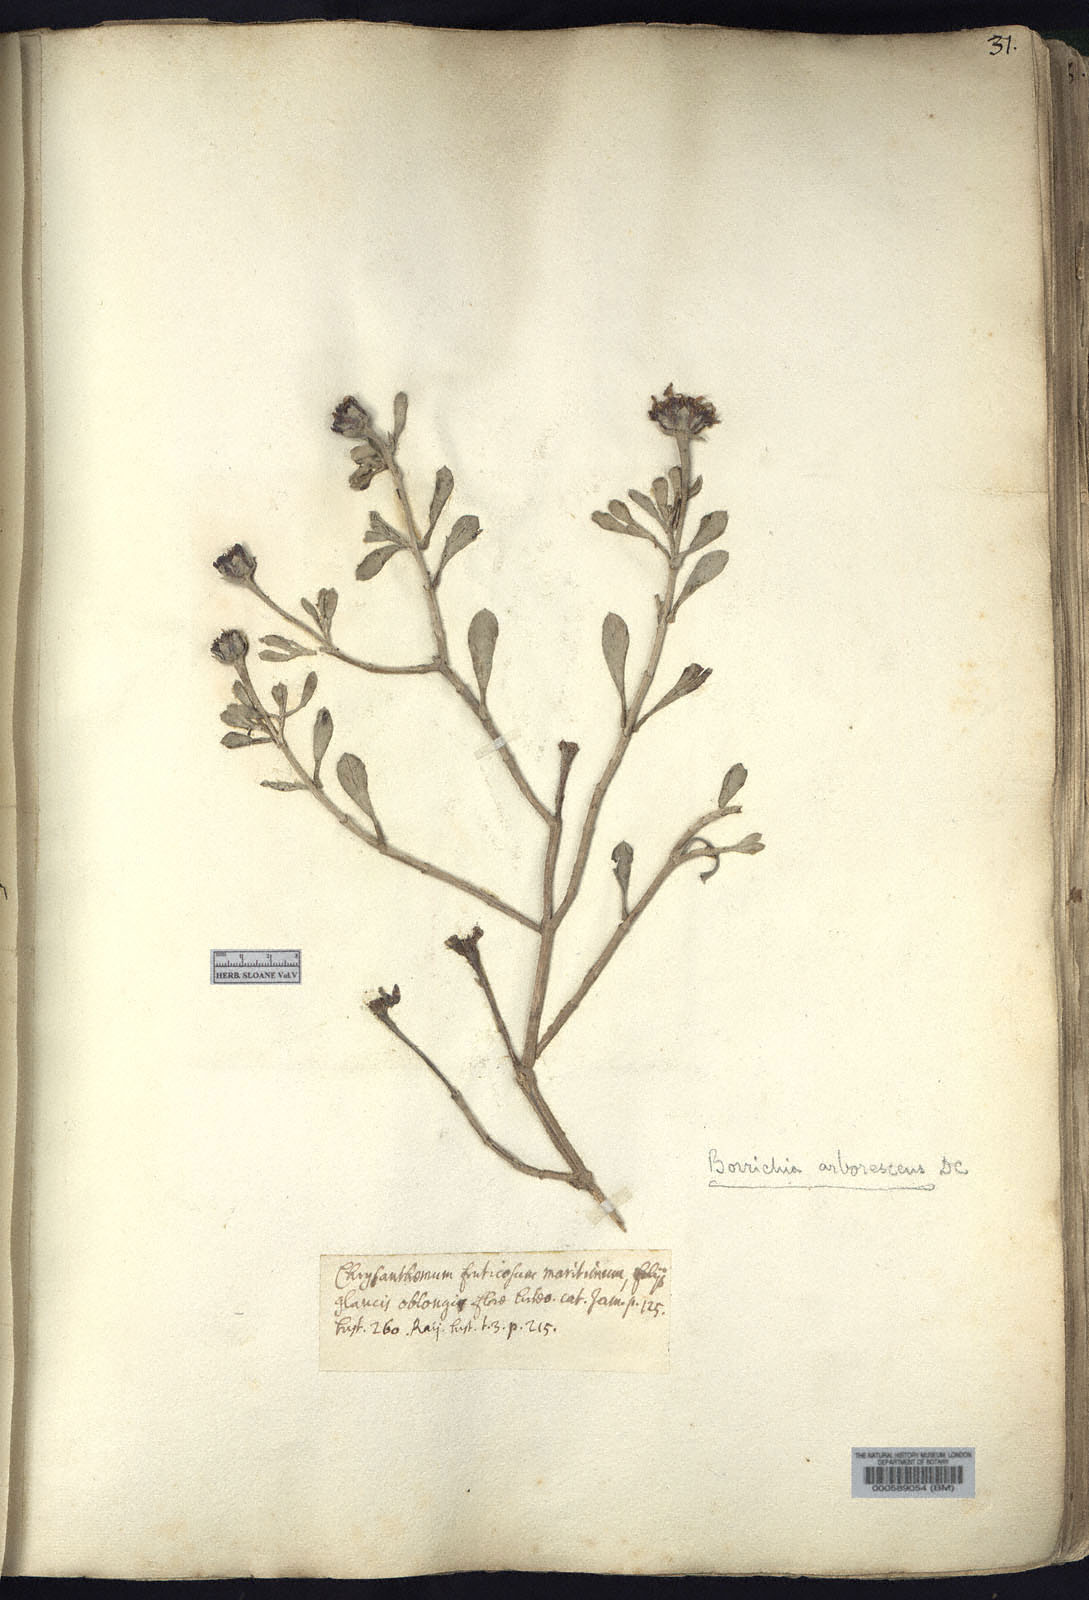 31.
HERB. SLOANE Vol.V
Borrichia arborescens DC
Chrysanthemum fruticosum maritimum, foliis
glaucis oblongis flore luteo. cat. Jam. p. 125.
hist. 260. Raij. hist. t. 3. p. 215.
THE NATURAL HISTORY MUSEUM, LONDON
DEPARTMENT OF BOTANY
000589054 (BM)